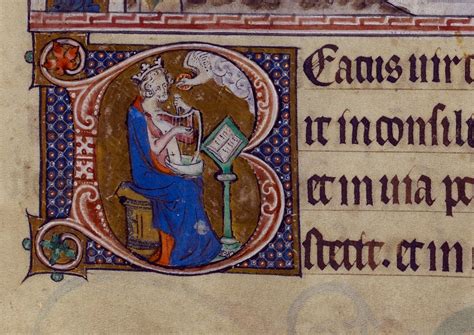 BEatus uir
iit in consil
et in uia pe
stetit. et in